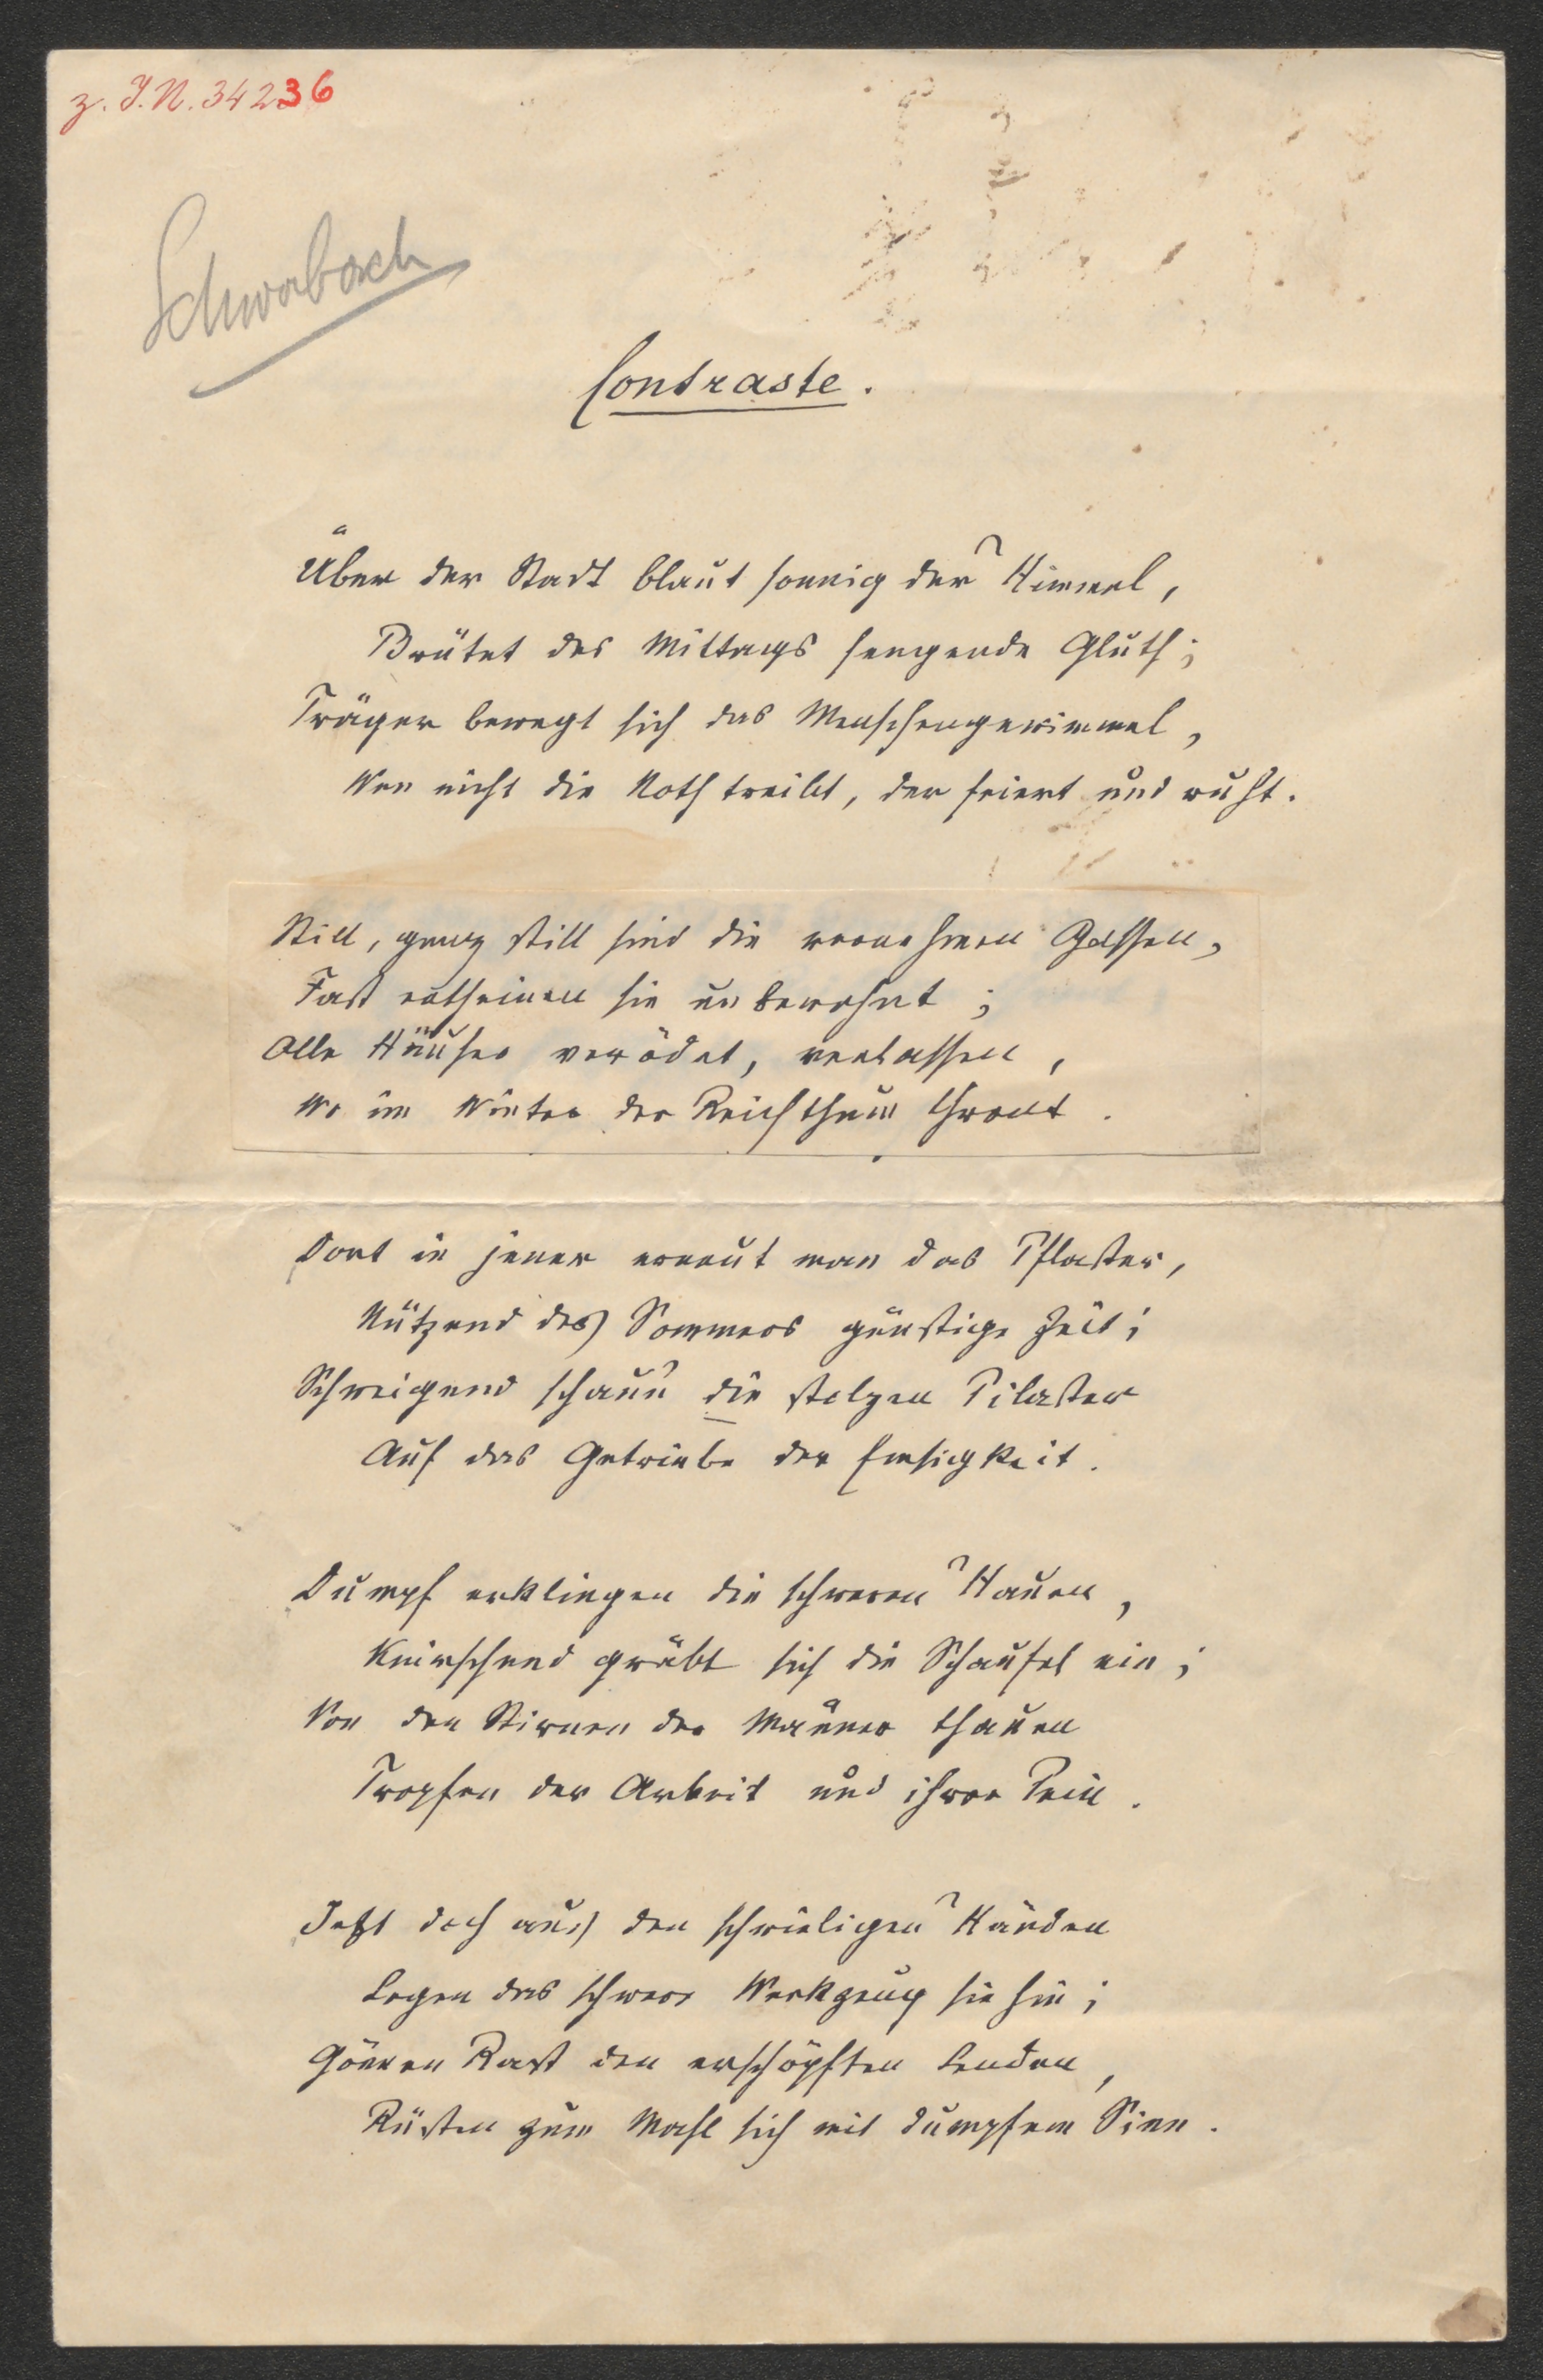 z. I.N. 34236
Schwabach
Contraste.
Über der Stadt blaut sonnig der Himmel,
Brütet des Mittags sengende Gluth;
Träger bewegt sich das Menschengewimmel,
Wen nicht die Noth treibt, der feiert und ruht.
Still, ganz still sind die vornehmen Gassen,
Fast erscheinen sie unbewohnt;
Alle Häuser verödet, verlassen,
Wo im Winter der Reichthum thront.
Dort in jener erneut man das Pflaster,
Nützend des Sommers günstige Zeit;
Schweigend schaun die stolzen Pilaster
Auf das Getriebe der Emsigkeit.
Dumpf erklingen die schweren Hauen,
Knirschend gräbt sich die Schaufel ein;
Von den Stirnen der Männer thauen
Tropfen der Arbeit und ihrer Pein.
Jetzt doch aus den schwieligen Händen
Legen das schwere Werkzeug sie hin;
Gönnen Rast den erschöpften Lenden,
Rüsten zum Mahl sich mit dumpfem Sinn.